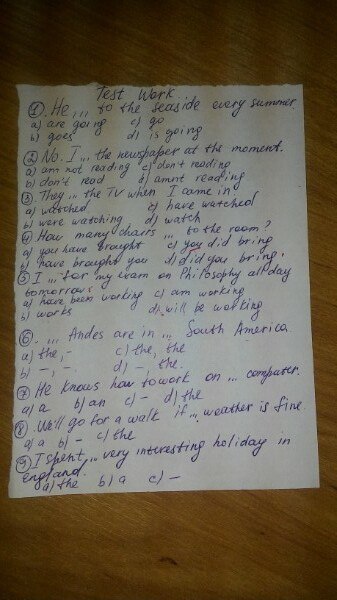 Test Work
① He ... to the seaside every summer
a) are going c) go
b) goes d) is going
② No. I ... the newspaper at the moment.
a) am not reading c) don't reading
b) don't read d) amnt reading
③ They ... the TV when I came in
a) watched c) have watched
b) were watching d) watch
④ How many chairs ... to the room?
a) you have brought c) you did bring
b) have brought you d) did you bring.
⑤ I ... for my exam on Philosophy all day
tomorrow.
a) have been working c) am working
b) works d) will be working
⑥ ... Andes are in ... South America
a) the, - c) the, the
b) -, - d) -, the.
⑦ He knows how to work on ... computer.
a) a b) an c) - d) the
⑧ We'll go for a walk if ... weather is fine.
a) a b) - c) the
⑨ I spent ... very interesting holiday in
england.
a) the b) a c) -